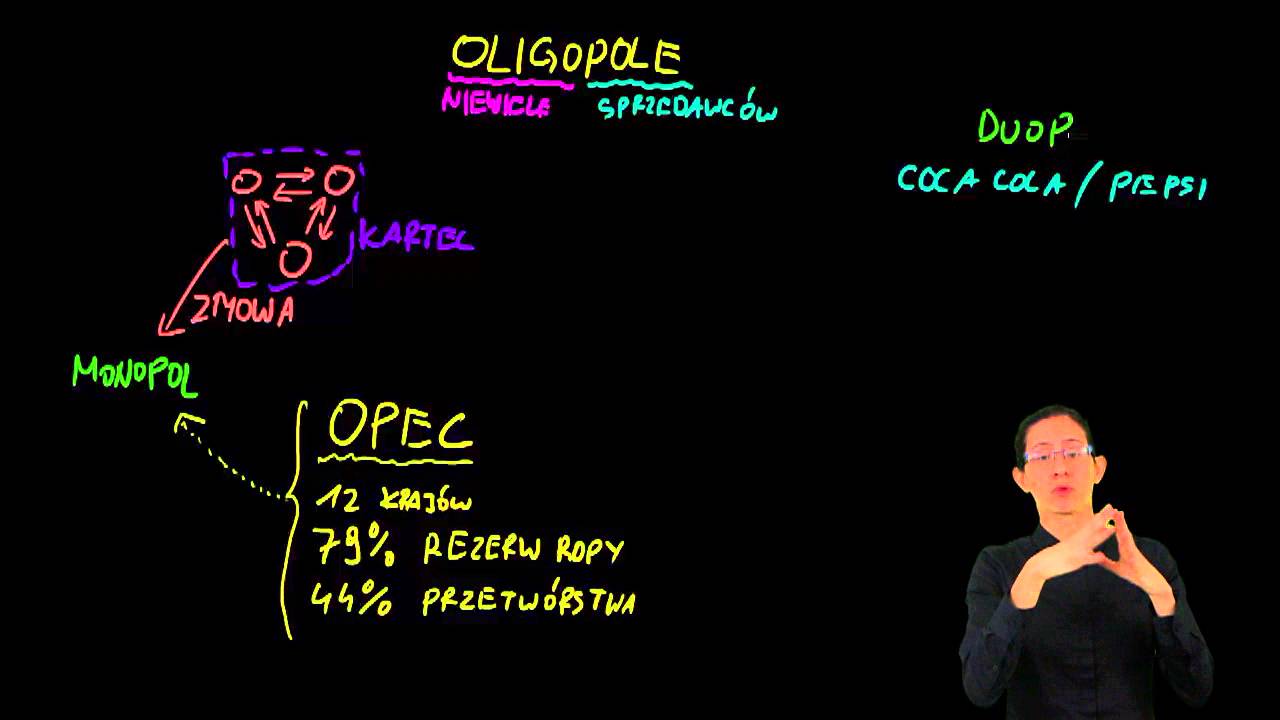 OLIGOPOLE
NIEWIELE SPRZEDAWCÓW
DUOP
COCA COLA / PEPSI
KARTEL
ZMOWA
MONOPOL
OPEC
12 KRAJÓW
79% REZERW ROPY
44% PRZETWÓRSTWA